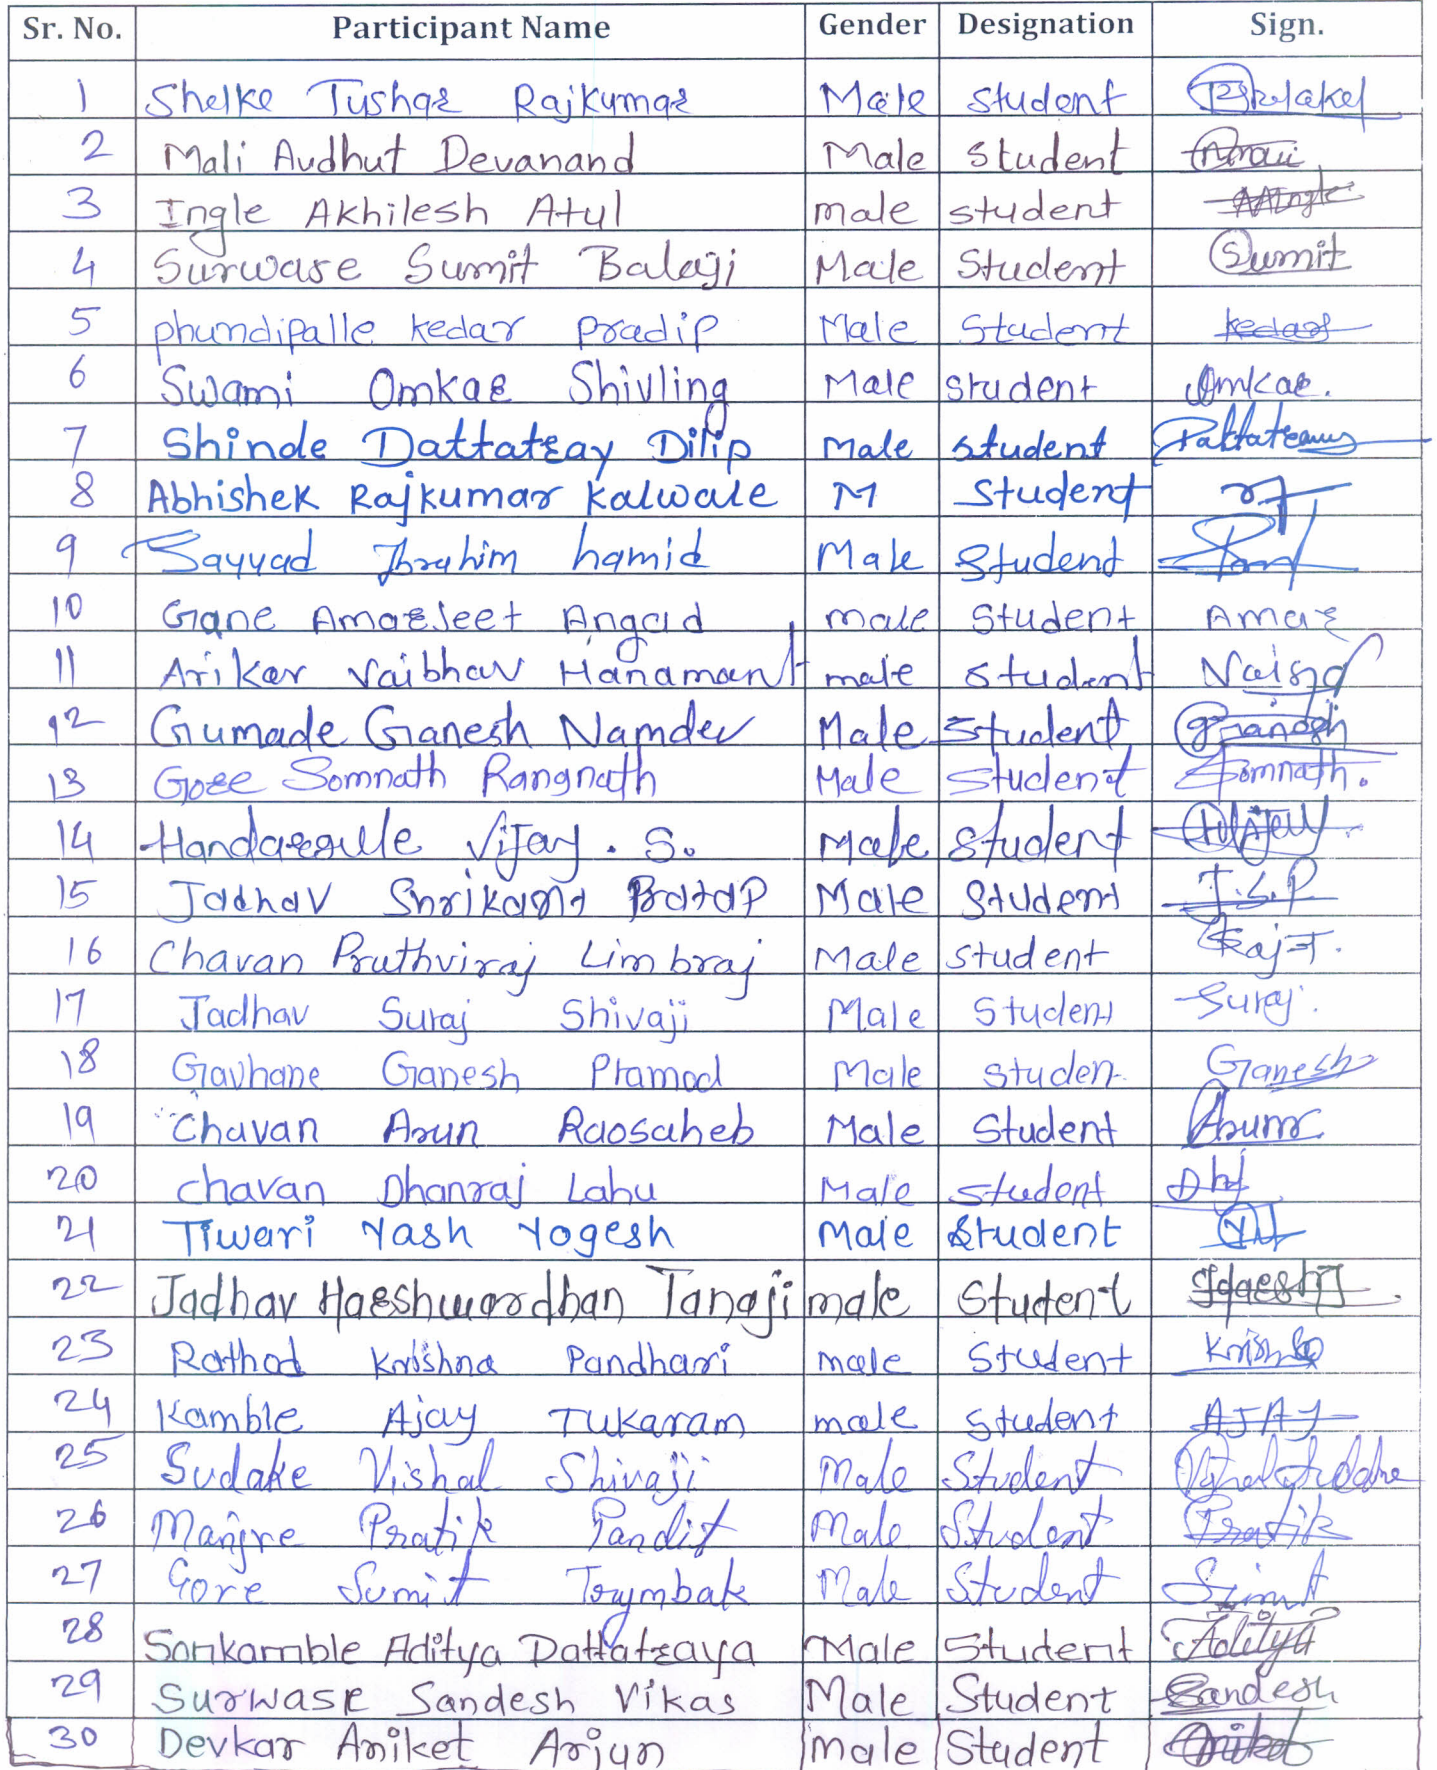 Sr. No. Participant Name Gender Designation Sign.
1 Shelke Tushar Rajkumar Male student
2 Mali Audhut Devanand Male Student
3 Ingle Akhilesh Atul male student
4 Surwase Sumit Balaji Male Student Sumit
5 phundipalle kedar pradip Male Student kedar
6 Swami Omkar Shivling Male student Omkar.
7 Shinde Dattatray Dilip Male student Dattatray
8 Abhishek Rajkumar Kalwale M Student
9 Sayyad Ibrahim hamid Male Student
10 Gane Amarjeet Angad male Student Amar
11 Arikar Vaibhav Hanamant male student
12 Gumade Ganesh Namdev Male Student Ganesh
13 Gore Somnath Rangnath Male Student Somnath.
14 Vijay . S. Male Student
15 Jadhav Shrikant Pratap Male Student J.S.P
16 Chavan Pruthviraj Limbraj Male student
17 Jadhav Suraj Shivaji Male Student Suraj.
18 Gavhane Ganesh Pramod Male Studen Ganesh
19 Chavan Arun Raosaheb Male Student
20 Chavan Dhanraj Lahu Male student
21 Tiwari Yash Yogesh Male Student
22 Jadhav Harshwardhan Tanaji male Student
23 Rathod Krishna Pandhari male Student
24 Kamble Ajay TUKaram male Student AJAY
25 Sudake Vishal Shivaji Male Student
26 Manjre Pratik Pandit Male Student Pratik
27 Gore Sumit Trymbak Male Student
28 Sonkamble Aditya Dattatraya Male Student Aditya
29 Surwase Sandesh Vikas Male Student Sandesh
30 Devkar Aniket Arjun male Student Aniket